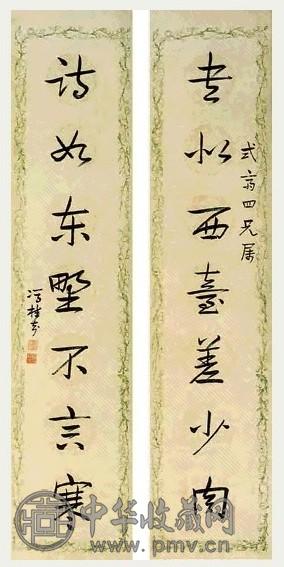 式翁四兄属
書似西臺差少肉
詩如东野不言寒
冯桂芬
中华收藏网
www.pmv.cn